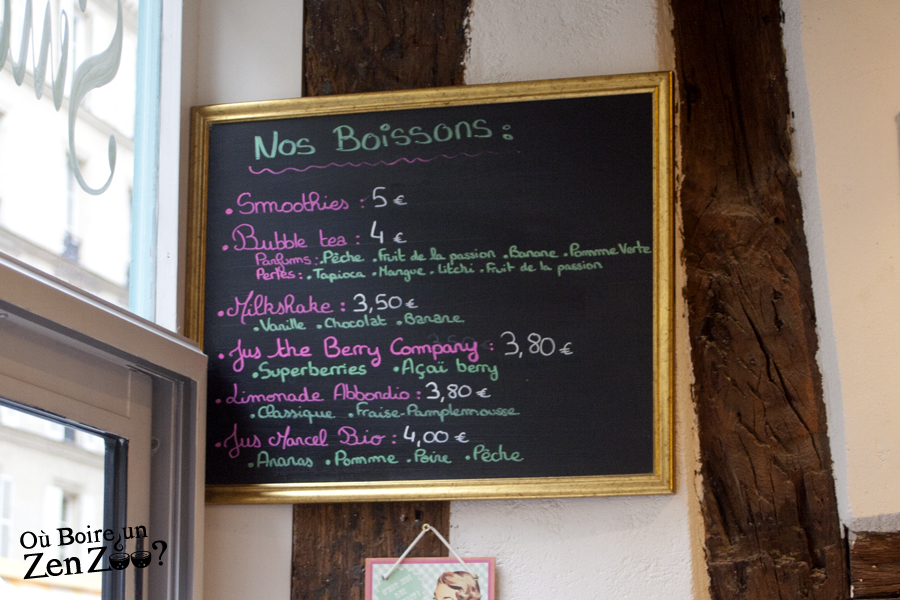 Nos Boissons :
• Smoothies : 5 €
• Bubble tea : 4 €
Parfums : • Pêche • Fruit de la passion • Banane • Pomme Verte
Perles : • Tapioca • Mangue • Litchi • Fruit de la passion
• Milkshake : 3,50 €
• Vanille • Chocolat • Banane
• Jus the Berry Company : 3,80 €
• Superberries • Açaï berry
• Limonade Abbondio : 3,80 €
• Classique • Fraise-Pamplemousse
• Jus Marcel Bio : 4,00 €
• Ananas • Pomme • Poire • Pêche
Où Boire un
Zen Zoo?